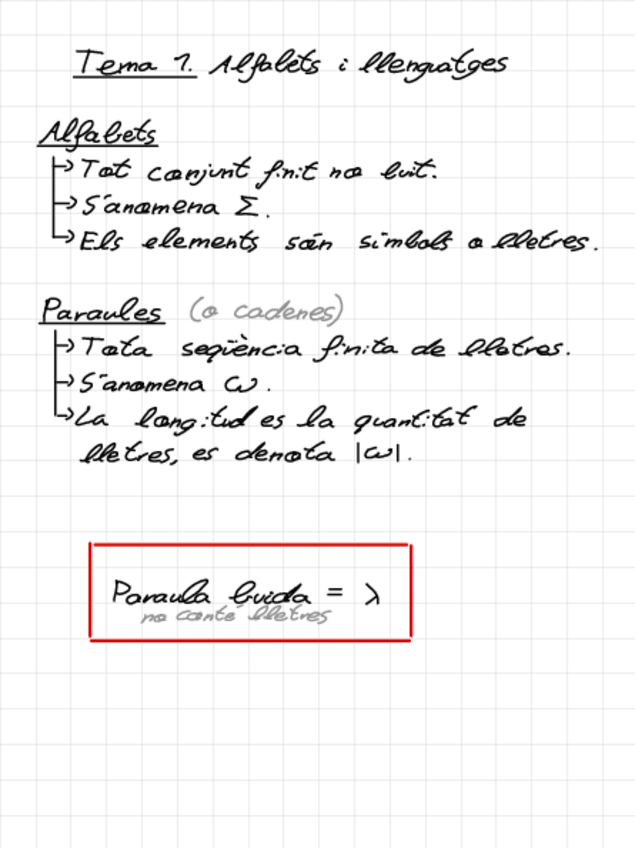 Tema 1. Alfabets i llenguatges
Alfabets
Tot conjunt finit no buit.
S'anomena Σ.
Els elements són símbols o lletres.
Paraules (o cadenes)
Tota seqüència finita de lletres.
S'anomena ω.
La longitud es la quantitat de
lletres, es denota |ω|.
Paraula buida = λ
no conté lletres